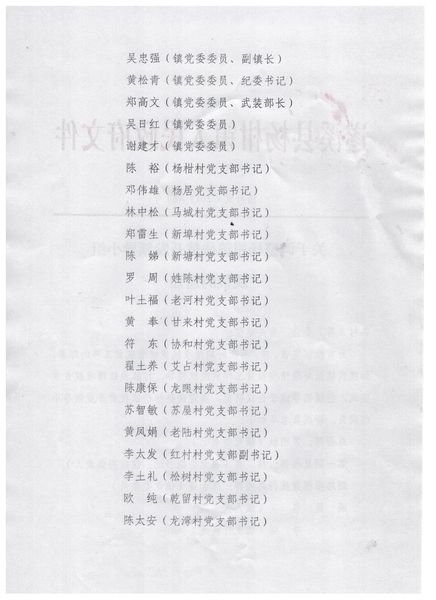 吴忠强（镇党委委员、副镇长）
黄松青（镇党委委员、纪委书记）
郑高文（镇党委委员、武装部长）
吴日红（镇党委委员）
谢建才（镇党委委员）
陈　裕（杨柑村党支部书记）
邓伟雄（杨居党支部书记）
林中松（马城村党支部书记）
郑雷生（新埠村党支部书记）
陈　娣（新塘村党支部书记）
罗　周（姓陈村党支部书记）
叶土福（老河村党支部书记）
黄　奉（甘来村党支部书记）
符　东（协和村党支部书记）
翟土养（艾占村党支部书记）
陈康保（龙眼村党支部书记）
苏智敏（苏屋村党支部书记）
黄凤娟（老陆村党支部书记）
李太发（红村村党支部副书记）
李土礼（松树村党支部书记）
欧　纯（乾留村党支部书记）
陈太安（龙湾村党支部书记）